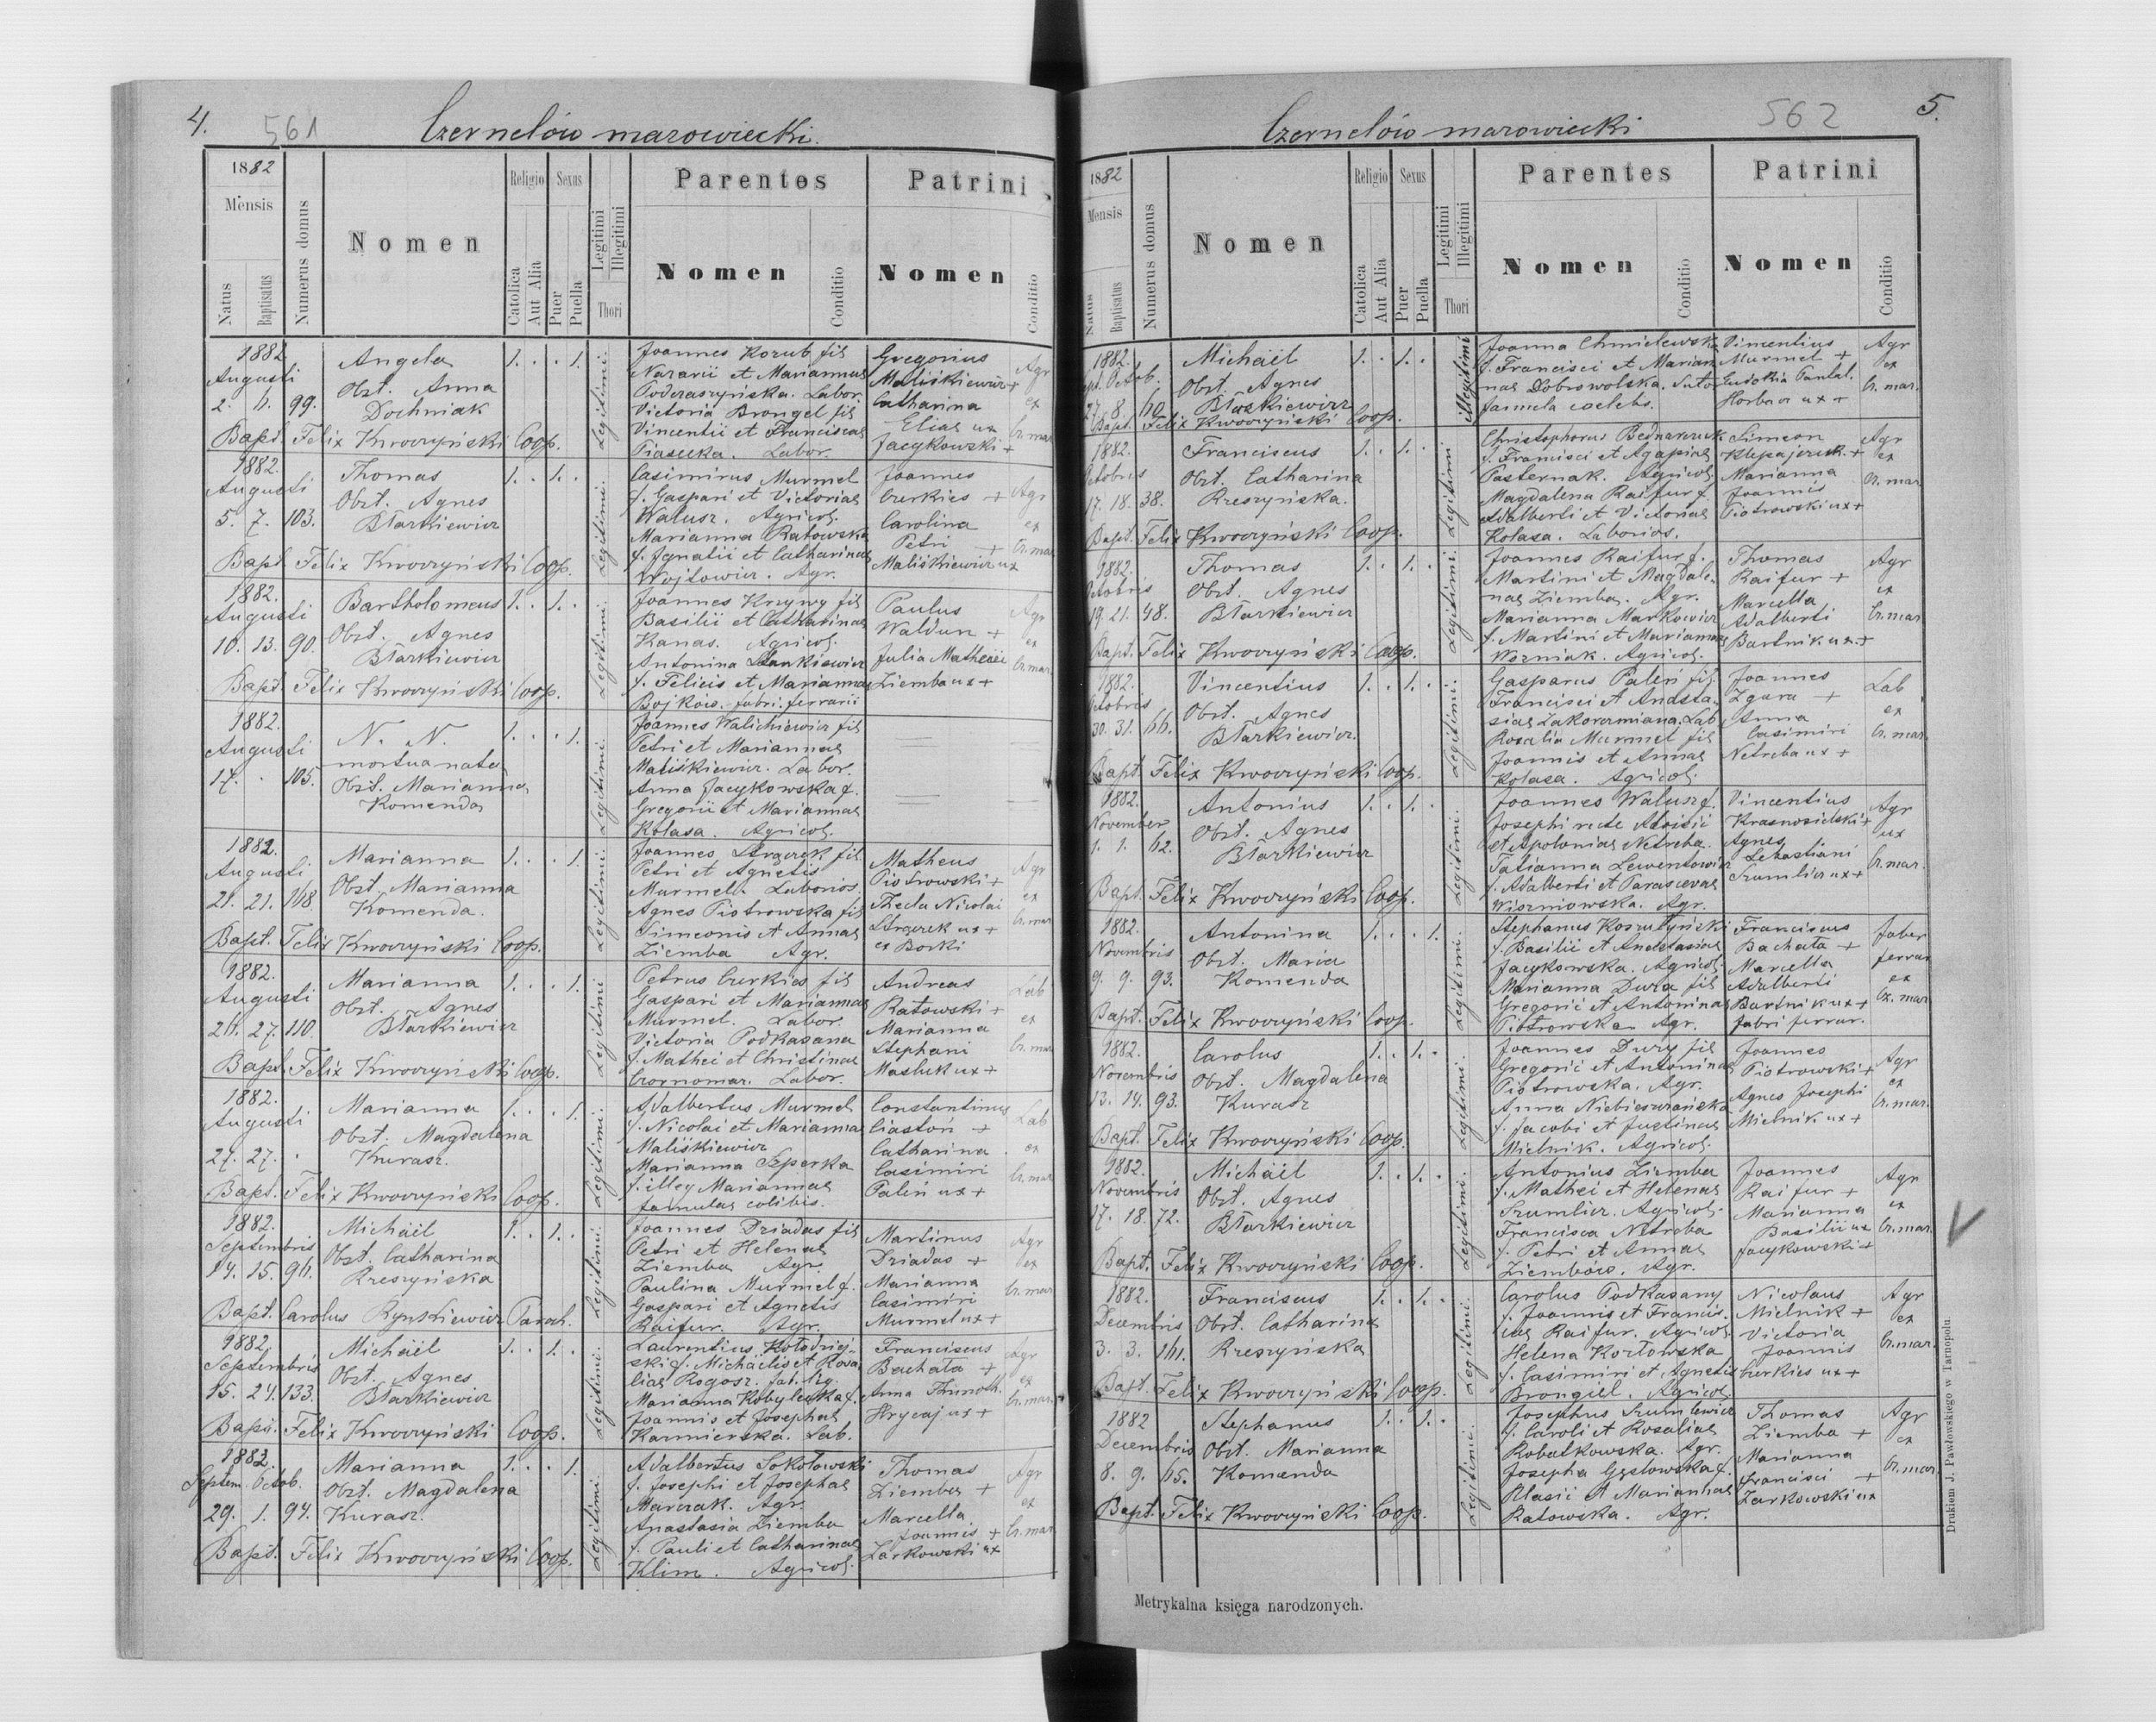 4.
561
Czernelów mazowiecki.
1882
Mensis
Natus
Baptisatus
Numerus domus
Nomen
Religio
Catolica
Aut Alia
Sexus
Puer
Puella
Legitimi
Illegitimi
Thori
Parentes
Nomen
Conditio
Patrini
Nomen
Conditio
1882
Augusti
2. 6. 99.
Angela
Obst. Anna
Dochniak
1. . . 1.
Legitimi.
Joannes Kozub fil
Nazarii et Mariannae
Podczaszyńska. Labor.
Victoria Brongel fil
Vincentii et Franciscae
Piasecka. Labor.
Gregorius
Maliśkiewicz +
Catharina
Elias ux
Jacykowski +
Agr
ex
Cr. mar
Bapt. Felix Kwoczyński Coop.
1882.
Augusti
5. 7. 103.
Thomas
Obst. Agnes
Błaszkiewicz
1. . 1. .
Legitimi.
Casimirus Murmel
f. Gaspari et Victoriae
Walusz. Agricol.
Marianna Ratowska
f. Ignatii et Catharinae
Wojtowicz. Agr.
Joannes
Curkies +
Carolina
Petri +
Maliśkiewicz ux
Agr
ex
Cr. mar
Bapt. Felix Kwoczyński Coop.
1882.
Augusti
10. 13. 90.
Bartholomeus
Obst. Agnes
Błaszkiewicz
1. . 1. .
Legitimi.
Joannes Krzywy fil
Basilii et Catharinae
Kanas. Agricol.
Antonina Stankiewicz
f. Felicis et Mariannae
Bojkow. fabri. ferrarii
Paulus
Waldun +
Julia Mathei
Ziemba ux +
Agr
ex
Cr. mar.
Bapt. Felix Kwoczyński Coop.
1882.
Augusti
17. . 105.
N. N.
mortua nata
Obst. Marianna
Komenda
1. . . 1.
Legitimi.
Joannes Walichiewicz fil
Petri et Mariannae
Maliśkiewicz. Labor.
Anna Jacykowska f.
Gregorii et Mariannae
Kolasa. Agricol.
1882.
Augusti
21. 21. 108.
Marianna
Obst. Marianna
Komenda.
1. . . 1.
Legitimi.
Joannes fil
Petri et Agnetis
Murmel. Laborios.
Agnes Piotrowska fil
Simeonis et Annae
Ziemba Agr.
Matheus
Piotrowski +
Thecla Nicolai
ux +
ex Borki
Agr
ex
Cr. mar
Bapt. Felix Kwoczyński Coop.
1882.
Augusti
26. 27. 110.
Marianna
Obst. Agnes
Błaszkiewicz
1. . . 1.
Legitimi
Petrus Curkies fil
Gaspari et Mariannae
Murmel. Labor.
Victoria Podkasana
f. Mathei et Christinae
Czornomaz. Labor.
Andreas
Ratowski +
Marianna
Stephani
Masluk ux +
Lab
ex
Cr. mar
Bapt. Felix Kwoczyński Coop.
1882.
Augusti
27. 27. .
Marianna
Obst. Magdalena
Kurasz.
1. . . 1.
Legitimi.
Adalbertus Murmel
f. Nicolai et Mariannae
Maliśkiewicz
Marianna Szperka
f. illeg Mariannae
famulae colibis.
Constantinus
Ciastoń +
Catharina
Casimiri
Paleń ux +
Lab
ex
Cr. mar
Bapt. Felix Kwoczyński Coop.
1882.
Septembris
14. 15. 96.
Michaël
Obst. Catharina
Kreszyńska
1. . 1. .
Legitimi.
Joannes Dziadas fil
Petri et Helenae
Ziemba Agr.
Paulina Murmel f.
Gaspari et Agnetis
Raifur. Agr.
Martinus
Dziadas +
Marianna
Casimiri
Murmel ux +
Agr
ex
Cr. mar.
Bapt. Carolus Paroch.
1882
Septembris
15. 24. 133.
Michaël
Obst. Agnes
Błaszkiewicz
1. . 1. .
Legitimi.
Laurentius Kołodziej-
ski f. Michaëlis et Rosa
liae Rogosz.
Marianna Kobylecka f.
Joannis et Josephae
Kazmierska. Lab.
Franciscus
Bachata +
Anna Thimoth.
Hrycaj ux +
Agr
ex
Cr. mar.
Bapt. Felix Kwoczyński Coop.
1882.
Septem. Octob.
29. 1. 94.
Marianna
Obst. Magdalena
Kurasz.
1. . . 1.
Legitimi.
Adalbertus Sokołowski
f. Josephi et Josephae
Marczak. Agr.
Anastasia Ziemba
f. Pauli et Catharinae
Klim. Agricol.
Thomas
Ziemba +
Marcella
Joannis +
Zarkowski ux
Agr
ex
Cr. mar
Bapt. Felix Kwoczyński Coop.
Czernelów mazowiecki
562
5.
1882
Mensis
Natus
Baptisatus
Numerus domus
Nomen
Religio
Catolica
Aut Alia
Sexus
Puer
Puella
Legitimi
Illegitimi
Thori
Parentes
Nomen
Conditio
Patrini
Nomen
Conditio
1882.
Sept. Octob.
27. 8. 60.
Michaël
Obst. Agnes
Błaszkiewicz
1. . 1. .
illegitimi
Joanna Chmielewska
f. Francisci et Marian
nae Dobrowolska.
famula caelebs.
Vincentius
Murmel +
Eudokia Pantal.
Horbacz ux +
Agr
ex
Cr. mar.
Bapt. Felix Kwoczyński Coop.
1882.
Octobris
17. 18. 38.
Franciscus
Obst. Catharina
Kreszyńska.
1. . 1. .
Legitimi
Christophorus Bednarczuk
f. Francisci et Agapiae
Pasternak. Agricol.
Magdalena Raifur f.
Adalberti et Victoriae
Kolasa. Laborios.
Simeon
Klepajczuk. +
Marianna
Joannis
Piotrowski ux +
Agr
ex
Cr. mar
Bapt. Felix Kwoczyński Coop.
1882.
Octobris
19. 21. 48.
Thomas
Obst. Agnes
Błaszkiewicz
1. . 1. .
Legitimi.
Joannes Raifur f.
Martini et Magdale-
nae Ziemba. Agr.
Marianna Markowicz
f. Martini et Mariannae
Wozniak. Agricol.
Thomas
Raifur +
Marcella
Adalberti
Bartnik ux. +
Agr
ex
Cr. mar
Bapt. Felix Kwoczyński Coop.
1882.
Octobris
30. 31. 66.
Vincentius
Obst. Agnes
Błaszkiewicz.
1. . 1. .
Legitimi.
Gasparus Paleń fil.
Francisci et Anasta-
siae Lab
Rozalia Murmel fil
Joannis et Annae
Kolasa. Agricol.
Joannes
Zgura +
Anna
Casimiri
Netreba ux +
Lab
ex
Cr. mar.
Bapt. Felix Kwoczyński Coop.
1882.
November
1. 1. 62.
Antonius
Obst. Agnes
Błaszkiewicz
1. . 1. .
Legitimi.
Joannes Walusz f.
Josephi recte Aloisii
et Apoloniae Netreba.
Tatianna Lewentowicz
f. Adalberti et Parascevae
Wiszniowska. Agr.
Vincentius
Krasnosielski +
Agnes
Sebastiani
Szumlicz ux +
Agr
ux
Cr. mar.
Bapt. Felix Kwoczyński Coop.
1882.
Novembris
9. 9. 93.
Antonina
Obst. Maria
Komenda
1. . . 1.
Legitimi.
Stephanus Koszutyński
f. Basilii et Anastasiae
Jacykowska. Agricol.
Marianna Dura fil
Gregorii et Antoninae
Piotrowska Agr.
Franciscus
Bachata +
Marcella
Adalberti
Bartnik ux +
fabri ferrar.
faber
ferrar
ex
Cz. mar
Bapt. Felix Kwoczyński Coop.
1882.
Novembris
13. 14. 93.
Carolus
Obst. Magdalena
Kurasz
1. . 1. .
Legitimi.
Joannes Dury fil
Gregorii et Antoninae
Piotrowska. Agr.
Anna Niebieszczańska
f. Jacobi et Justinae
Mielnik. Agricol.
Joannes
Piotrowski +
Agnes Josephi
Mielnik ux +
Agr
ex
Cr. mar.
Bapt. Felix Kwoczyński Coop.
1882.
Novembris
17. 18. 72.
Michaël
Obst. Agnes
Błaszkiewicz
1. . 1. .
Legitimi.
Antonius Ziemba
f. Mathei et Helenae
Szumlicz. Agricol.
Francisca Netreba
f. Petri et Annae
Ziembów. Agr.
Joannes
Raifur +
Marianna
Basilii ux
Jacykowski +
Agr
ex
Cr. mar.
Bapt. Felix Kwoczyński Coop.
1882.
Decembris
3. 3. 161.
Franciscus
Obst. Catharina
Kreszyńska
1. . 1. .
Legitimi.
Carolus Podkasany
f. Joannis et Francis-
cae Raifur. Agricol.
Helena Kozłowska
f. Casimiri et Agnetis
Brongiel. Agricol.
Nicolaus
Mielnik +
Victoria
Joannis
Curkies ux +
Agr
ex
Cr. mar.
Bapt. Felix Kwoczyński Coop.
1882
Decembris
8. 9. 65.
Stephanus
Obst. Marianna
Komenda
1. . 1. .
Legitimi.
Josephus Szumlewicz
f. Caroli et Rosaliae
Robatkowska. Agr.
Josepha f.
Blasii et Mariannae
Ratowska. Agr.
Thomas
Ziemba +
Marianna
Francisci +
Zarkowski ux
Agr
ex
Cr. mar.
Bapt. Felix Kwoczyński Coop.
Metrykalna księga narodzonych.
Drukiem J. Pawłowskiego w Tarnopolu.